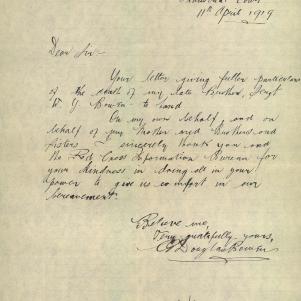 11th April 1919
Dear Sir:-
Your letter giving fuller particulars
of the death of my late Brother, Sergt
W. J. Bowen - to hand
On my own behalf, and on
behalf of my Mother and Brothers and
sisters I sincerely thank you and
the Red Cross Information Bureau for
your kindness in doing all in your
power to give us comfort in our
bereavement.
Believe me,
Very gratefully yours,
Douglas Bowen